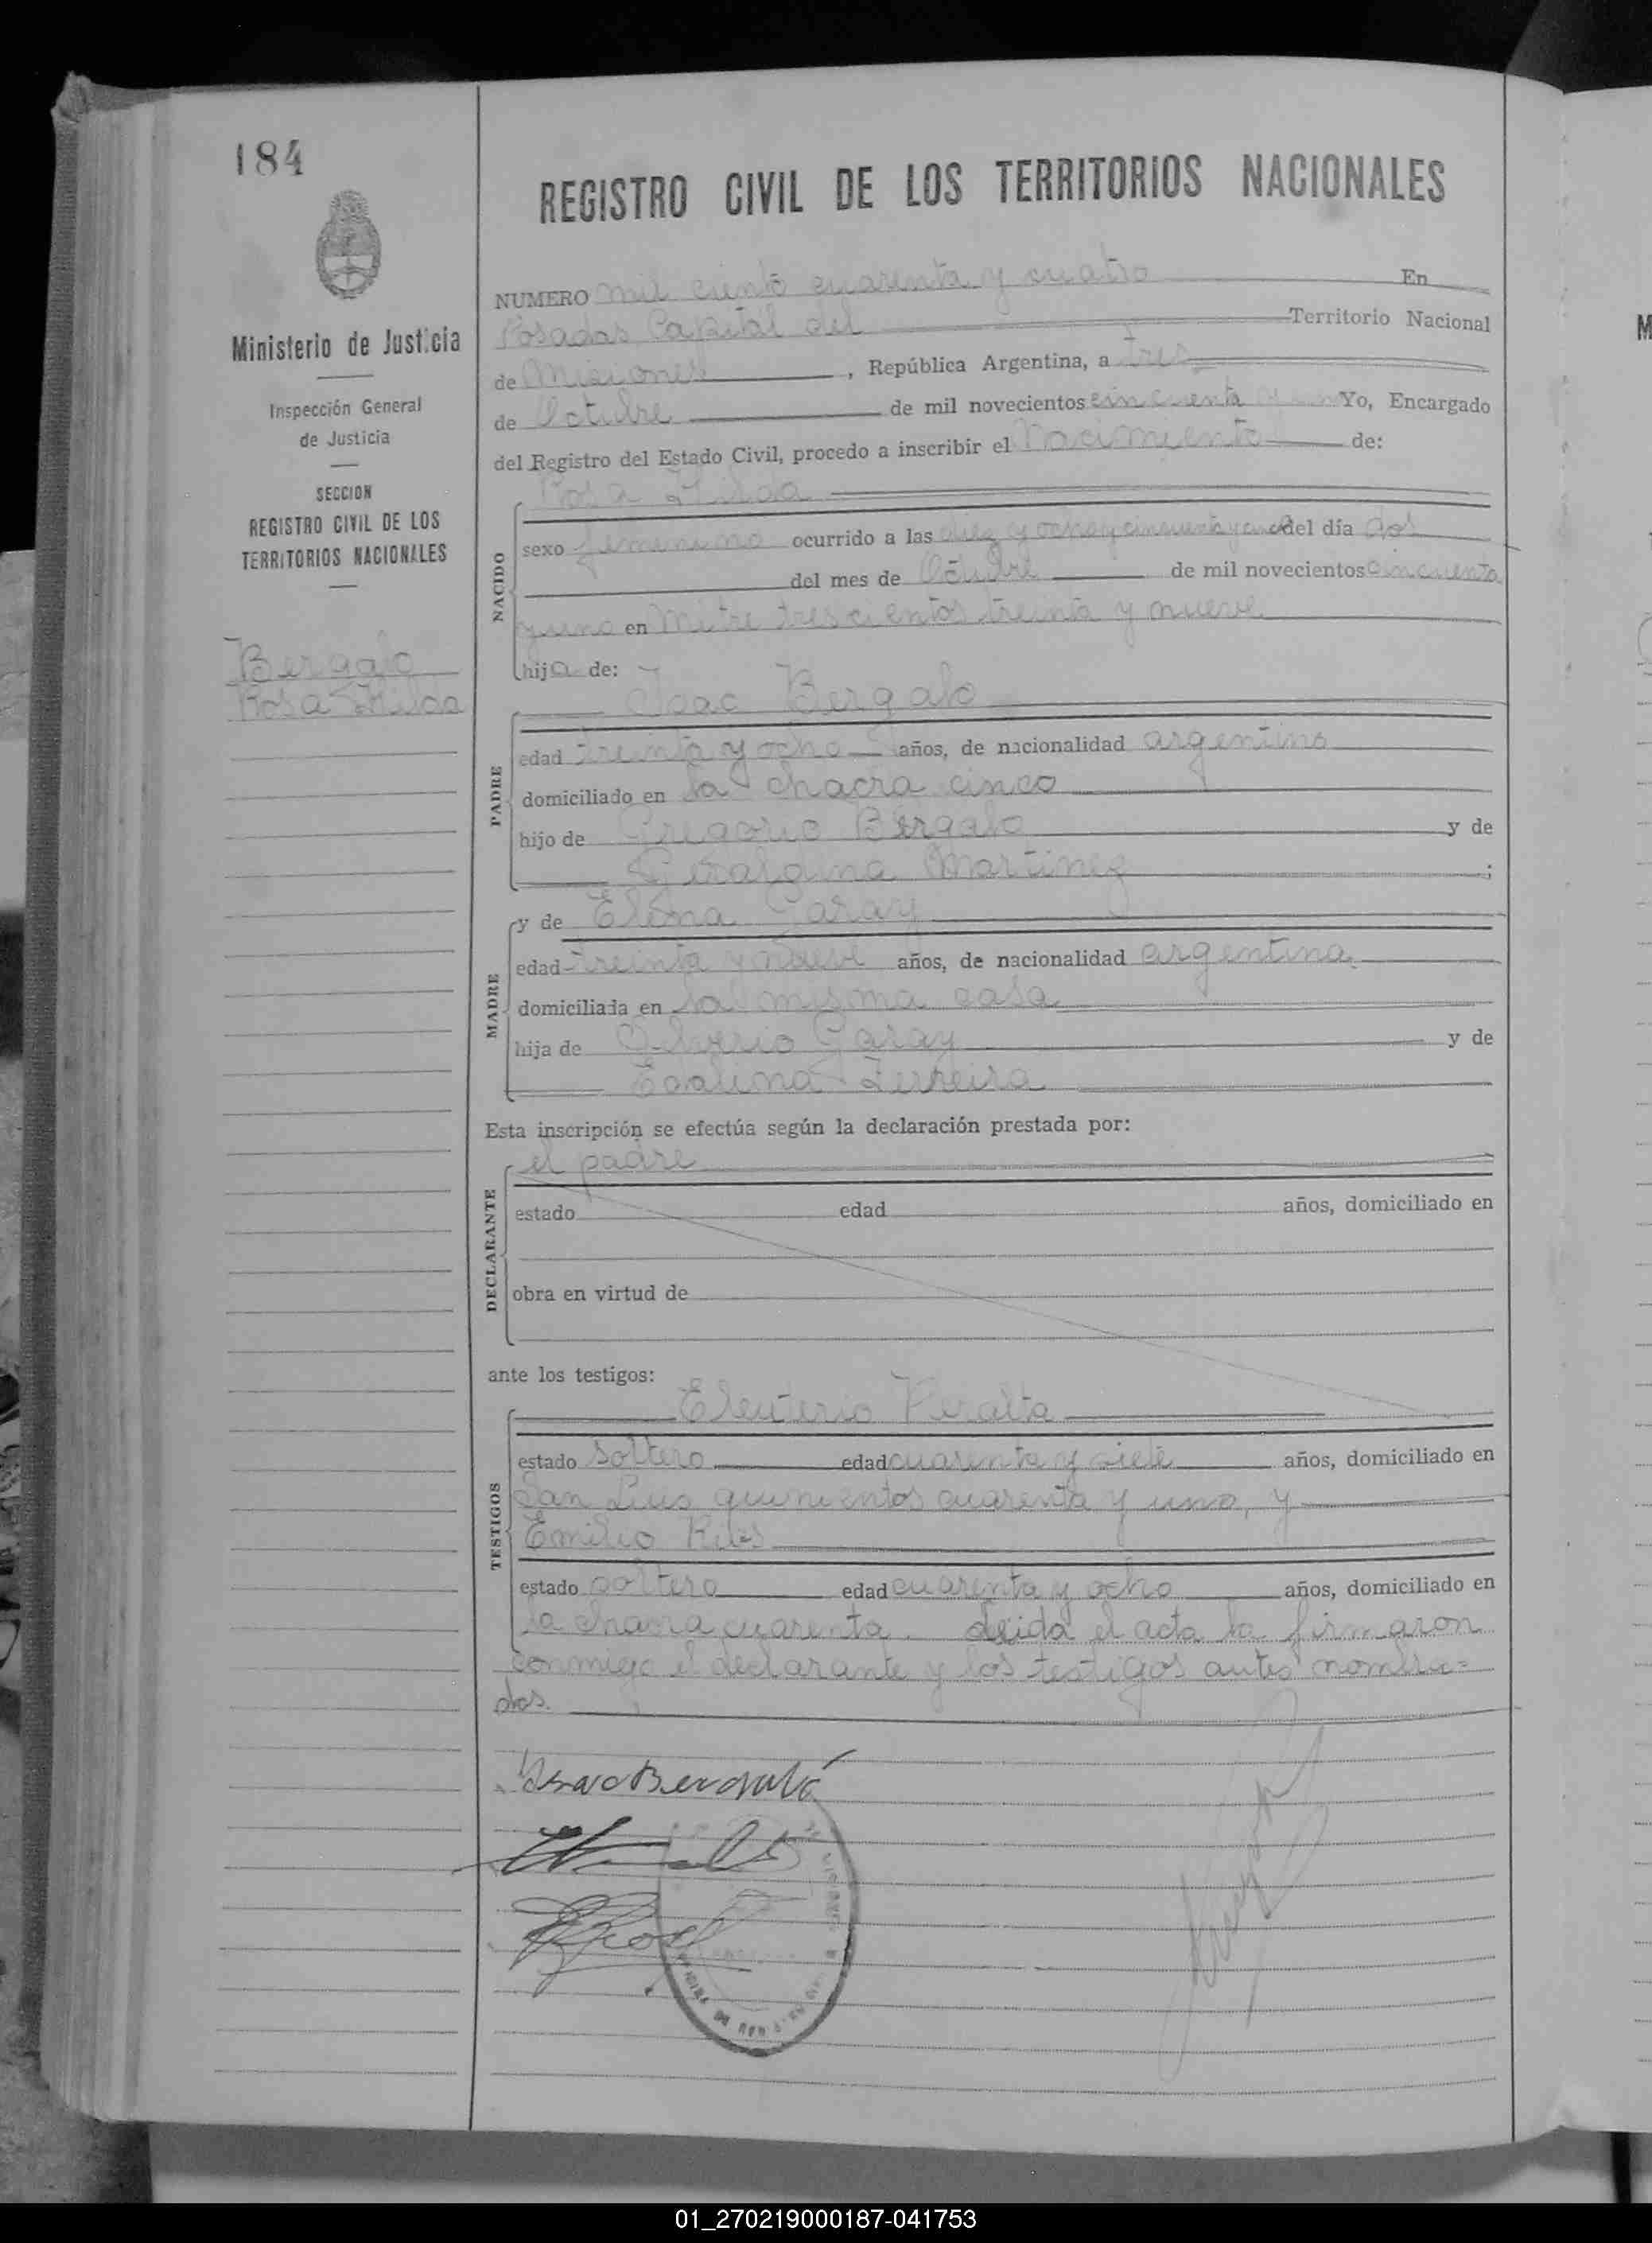 184
REGISTRO CIVIL DE LOS TERRITORIOS NACIONALES
Ministerio de Justicia
Inspección General
de Justicia
SECCION
REGISTRO CIVIL DE LOS
TERRITORIOS NACIONALES
Bergalo
Rosa Hilda
NUMERO mil ciento cuarenta y cuatro En
Posadas Capital del Territorio Nacional
de Misiones, República Argentina, a tres
de Octubre de mil novecientos cincuenta y un Yo, Encargado
del Registro del Estado Civil, procedo a inscribir el Nacimiento de:
Rosa Hilda
NACIDO
sexo femenino ocurrido a las diez y ocho y cincuenta y del día dos
del mes de Octubre de mil novecientos cincuenta
y uno en Mitre trescientos treinta y nueve
hija de:
Isaac Bergalo
PADRE
edad treinta y ocho años, de nacionalidad argentino
domiciliado en la chacra cinco
hijo de Gregorio Bergalo y de
Geraldina Martinez;
MADRE
y de Elena Garay
edad treinta y nueve años, de nacionalidad argentina
domiciliada en la misma casa
hija de Garay y de
Ferreira
Esta inscripción se efectúa según la declaración prestada por:
el padre
DECLARANTE
estado edad años, domiciliado en
obra en virtud de
ante los testigos:
Eleuterio Peralta
TESTIGOS
estado soltero edad cuarenta y siete años, domiciliado en
San Luis quinientos cuarenta y uno, y
Emilio
estado soltero edad cuarenta y ocho años, domiciliado en
la chacra cuarenta. Leida el acta la firmaron
conmigo el declarante y los testigos antes nombra=
dos.
Isaac Bergalo
01_270219000187-041753